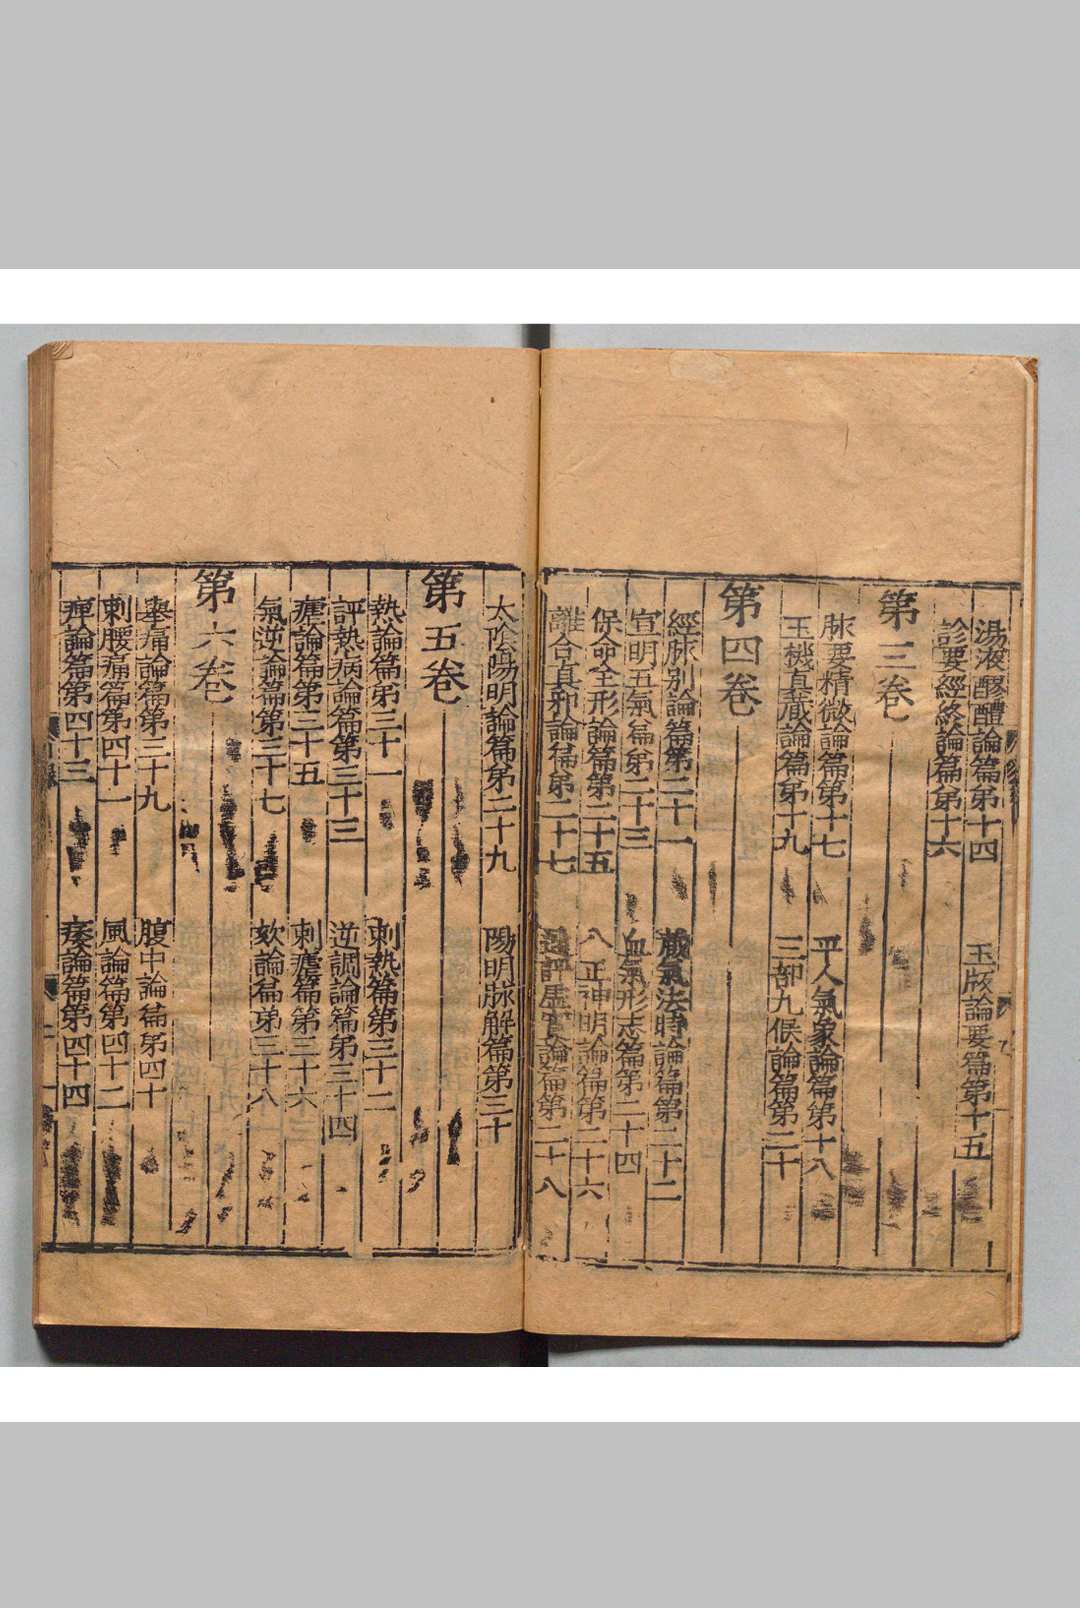 湯液醪醴論篇第十四　玉版論要篇第十五
診要經終論篇第十六
第三卷
脉要精微論篇第十七　平人氣象論篇第十八
玉機真藏論篇第十九　三部九候論篇第二十
第四卷
經脉別論篇第二十一　藏氣法時論篇第二十二
宣明五氣篇第二十三　血氣形志篇第二十四
保命全形論篇第二十五　八正神明論篇第二十六
離合真邪論篇第二十七　通評虛實論篇第二十八
太陰陽明論篇第二十九　陽明脉解篇第三十
第五卷
熱論篇第三十一　刺熱篇第三十二
評熱病論篇第三十三　逆調論篇第三十四
瘧論篇第三十五　刺瘧篇第三十六
氣逆論篇第三十七　欬論篇第三十八
第六卷
舉痛論篇第三十九　腹中論篇第四十
刺腰痛篇第四十一　風論篇第四十二
痺論篇第四十三　痿論篇第四十四